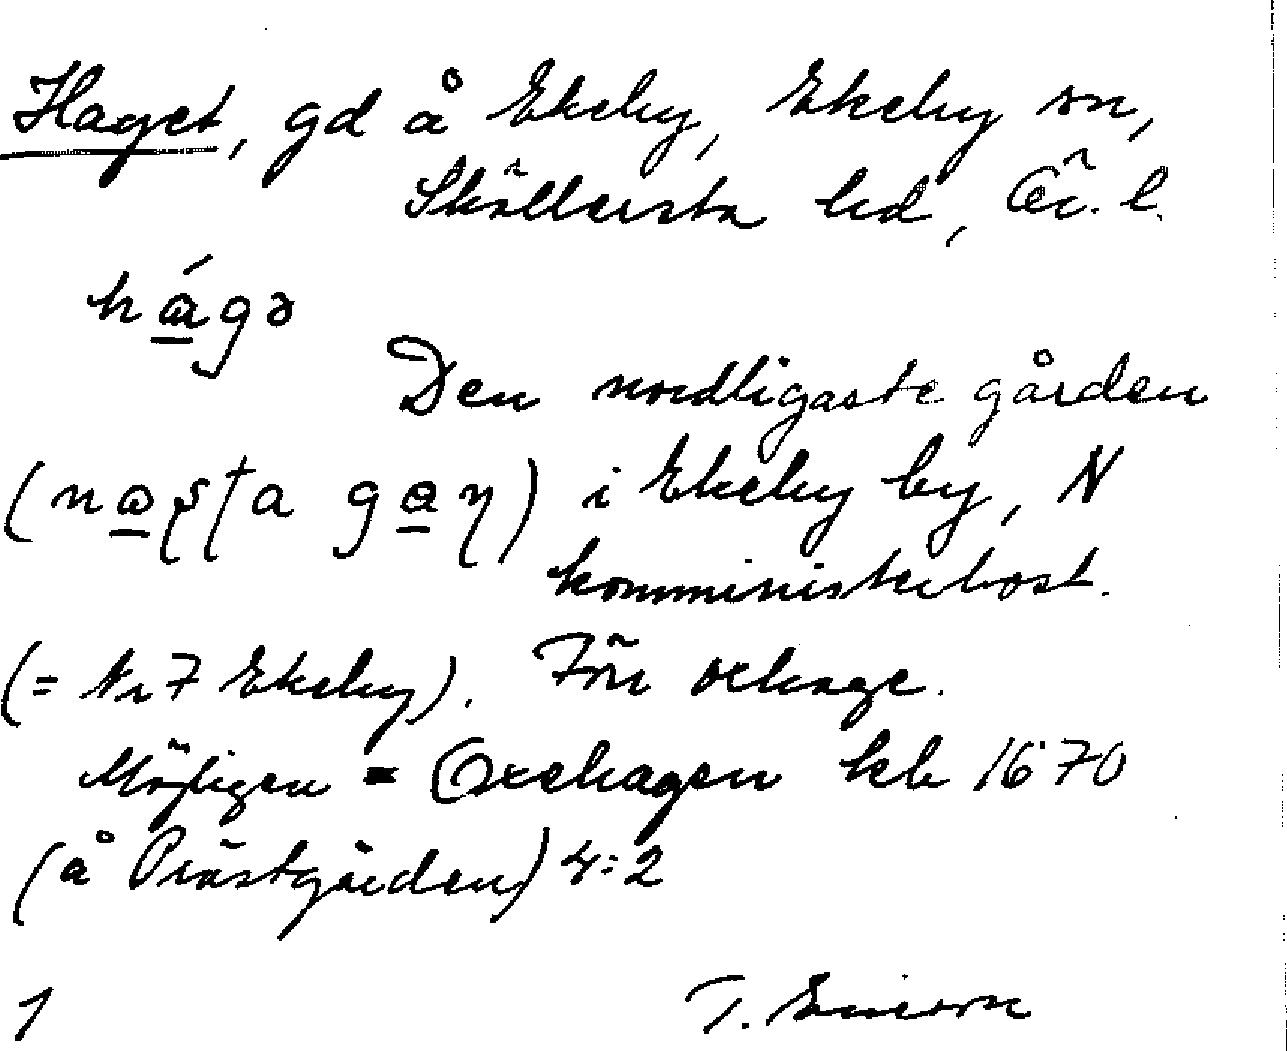 Haget, gd å Ekeby, Ekeby sn,
Sköllersta hd, Ör. l.
hágə
Den nordligaste gården
(nɷṣṭa gaṇ) i Ekeby by, N
komministerbost.
(= Nr 7 Ekeby). Förr oxhage.
Möjligen = Oxehagen kb 1670
(å Prästgården) 4:2
1 T. Ericsson